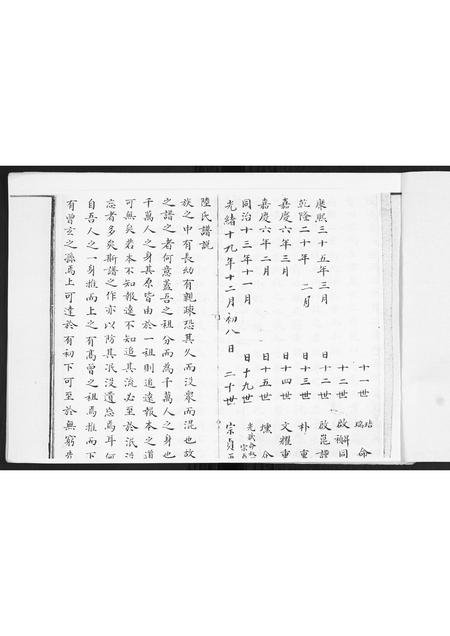 十一世 培 瑞 命
十二世 啟 同
康熙三十五年三月 日 十二世 啟崑 譚
乾隆二十年 二月 日 十三世 朴 重
嘉慶六年三月 日 十四世 文耀 重
嘉慶六年二月 日 十五世
同治十三年十一月 日 十九世
光緒十九年十二月初八 日 二十世 宗貞
陸氏譜説
族之中有長幼有親疎恐其久而没衆而混也故
之譜之者何意蓋吾之祖分而為千萬人之身也
千萬人之身其原皆由於一祖則追遠報本之道
可無矣若本不知報遠不知追其流必至於泯
忘者多矣斯譜之作亦以防其泯没遺忘焉耳何
自吾人之一身推而上之有髙曽之祖焉推而下
有曽玄之孫焉上可達於有初下可至於無窮